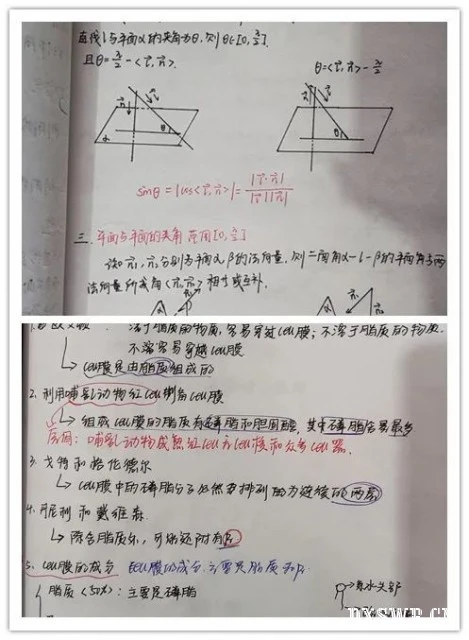 直线l与平面α的夹角为θ,则θ∈[0,π/2].
且θ=π/2-<l,n>.
θ=<l,n>-π/2
n
l
θ
α
n
l
θ
sinθ=|cos<l,n>|=|l·n|/|l||n|
三.平面与平面的夹角 范围[0,π/2]
设n₁,n₂分别为平面α,β的法向量,则二面角α-l-β的平面角与两
法向量所成角<n₁,n₂>相等或互补.
溶于脂质的物质,容易穿越cell膜;不溶于脂质的物质.
不容易穿越cell膜
↳ cell膜是由脂质组成的
2.利用哺乳动物红cell制备cell膜
↳ 组成cell膜的脂质有磷脂和胆固醇,其中磷脂含量最多
原因:哺乳动物成熟红cell无cell核和众多cell器.
3.戈特和格伦德尔
↳ cell膜中的磷脂分子必然排列为连续的两层
4.丹尼利和戴维森
↳ 除含脂质外,可能还附有
5.cell膜的成分 cell膜的成分:主要是脂质和
脂质(50%):主要是磷脂
亲水头部